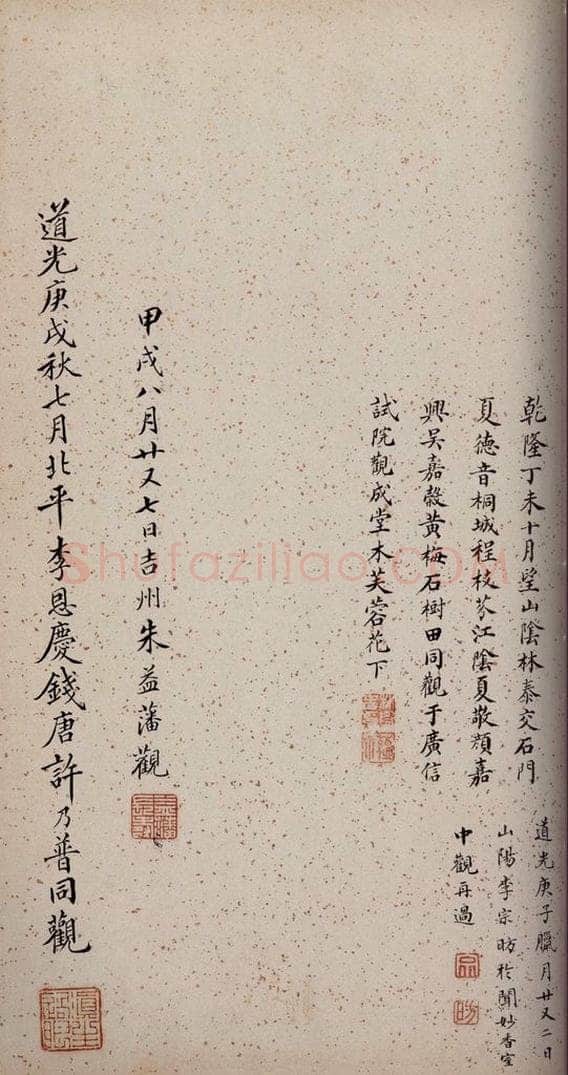 乾隆丁未十月望山陰林泰交石門
夏德音桐城程枚芬江陰夏敬顏嘉
興吳嘉穀黃梅石樹田同觀于廣信
試院觀成堂木芙蓉花下
道光庚子臘月廿又二日
山陽李宗昉於聞妙香室
中觀再過
昉
甲戌八月廿又七日吉州朱益藩觀
道光庚戌秋七月北平李恩慶錢唐許乃普同觀
Shufaziliao.COM